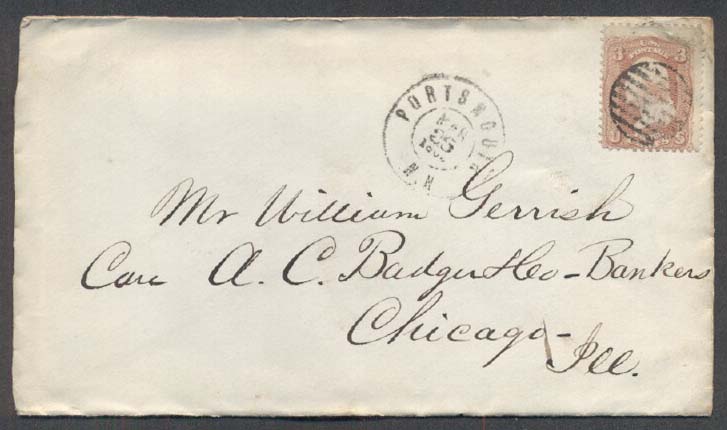 3 U.S. POSTAGE 3
PORTSMOUTH
N.H.
Mr William Gerrish
Care A. C. Badger & Co - Bankers
Chicago -
Ill.